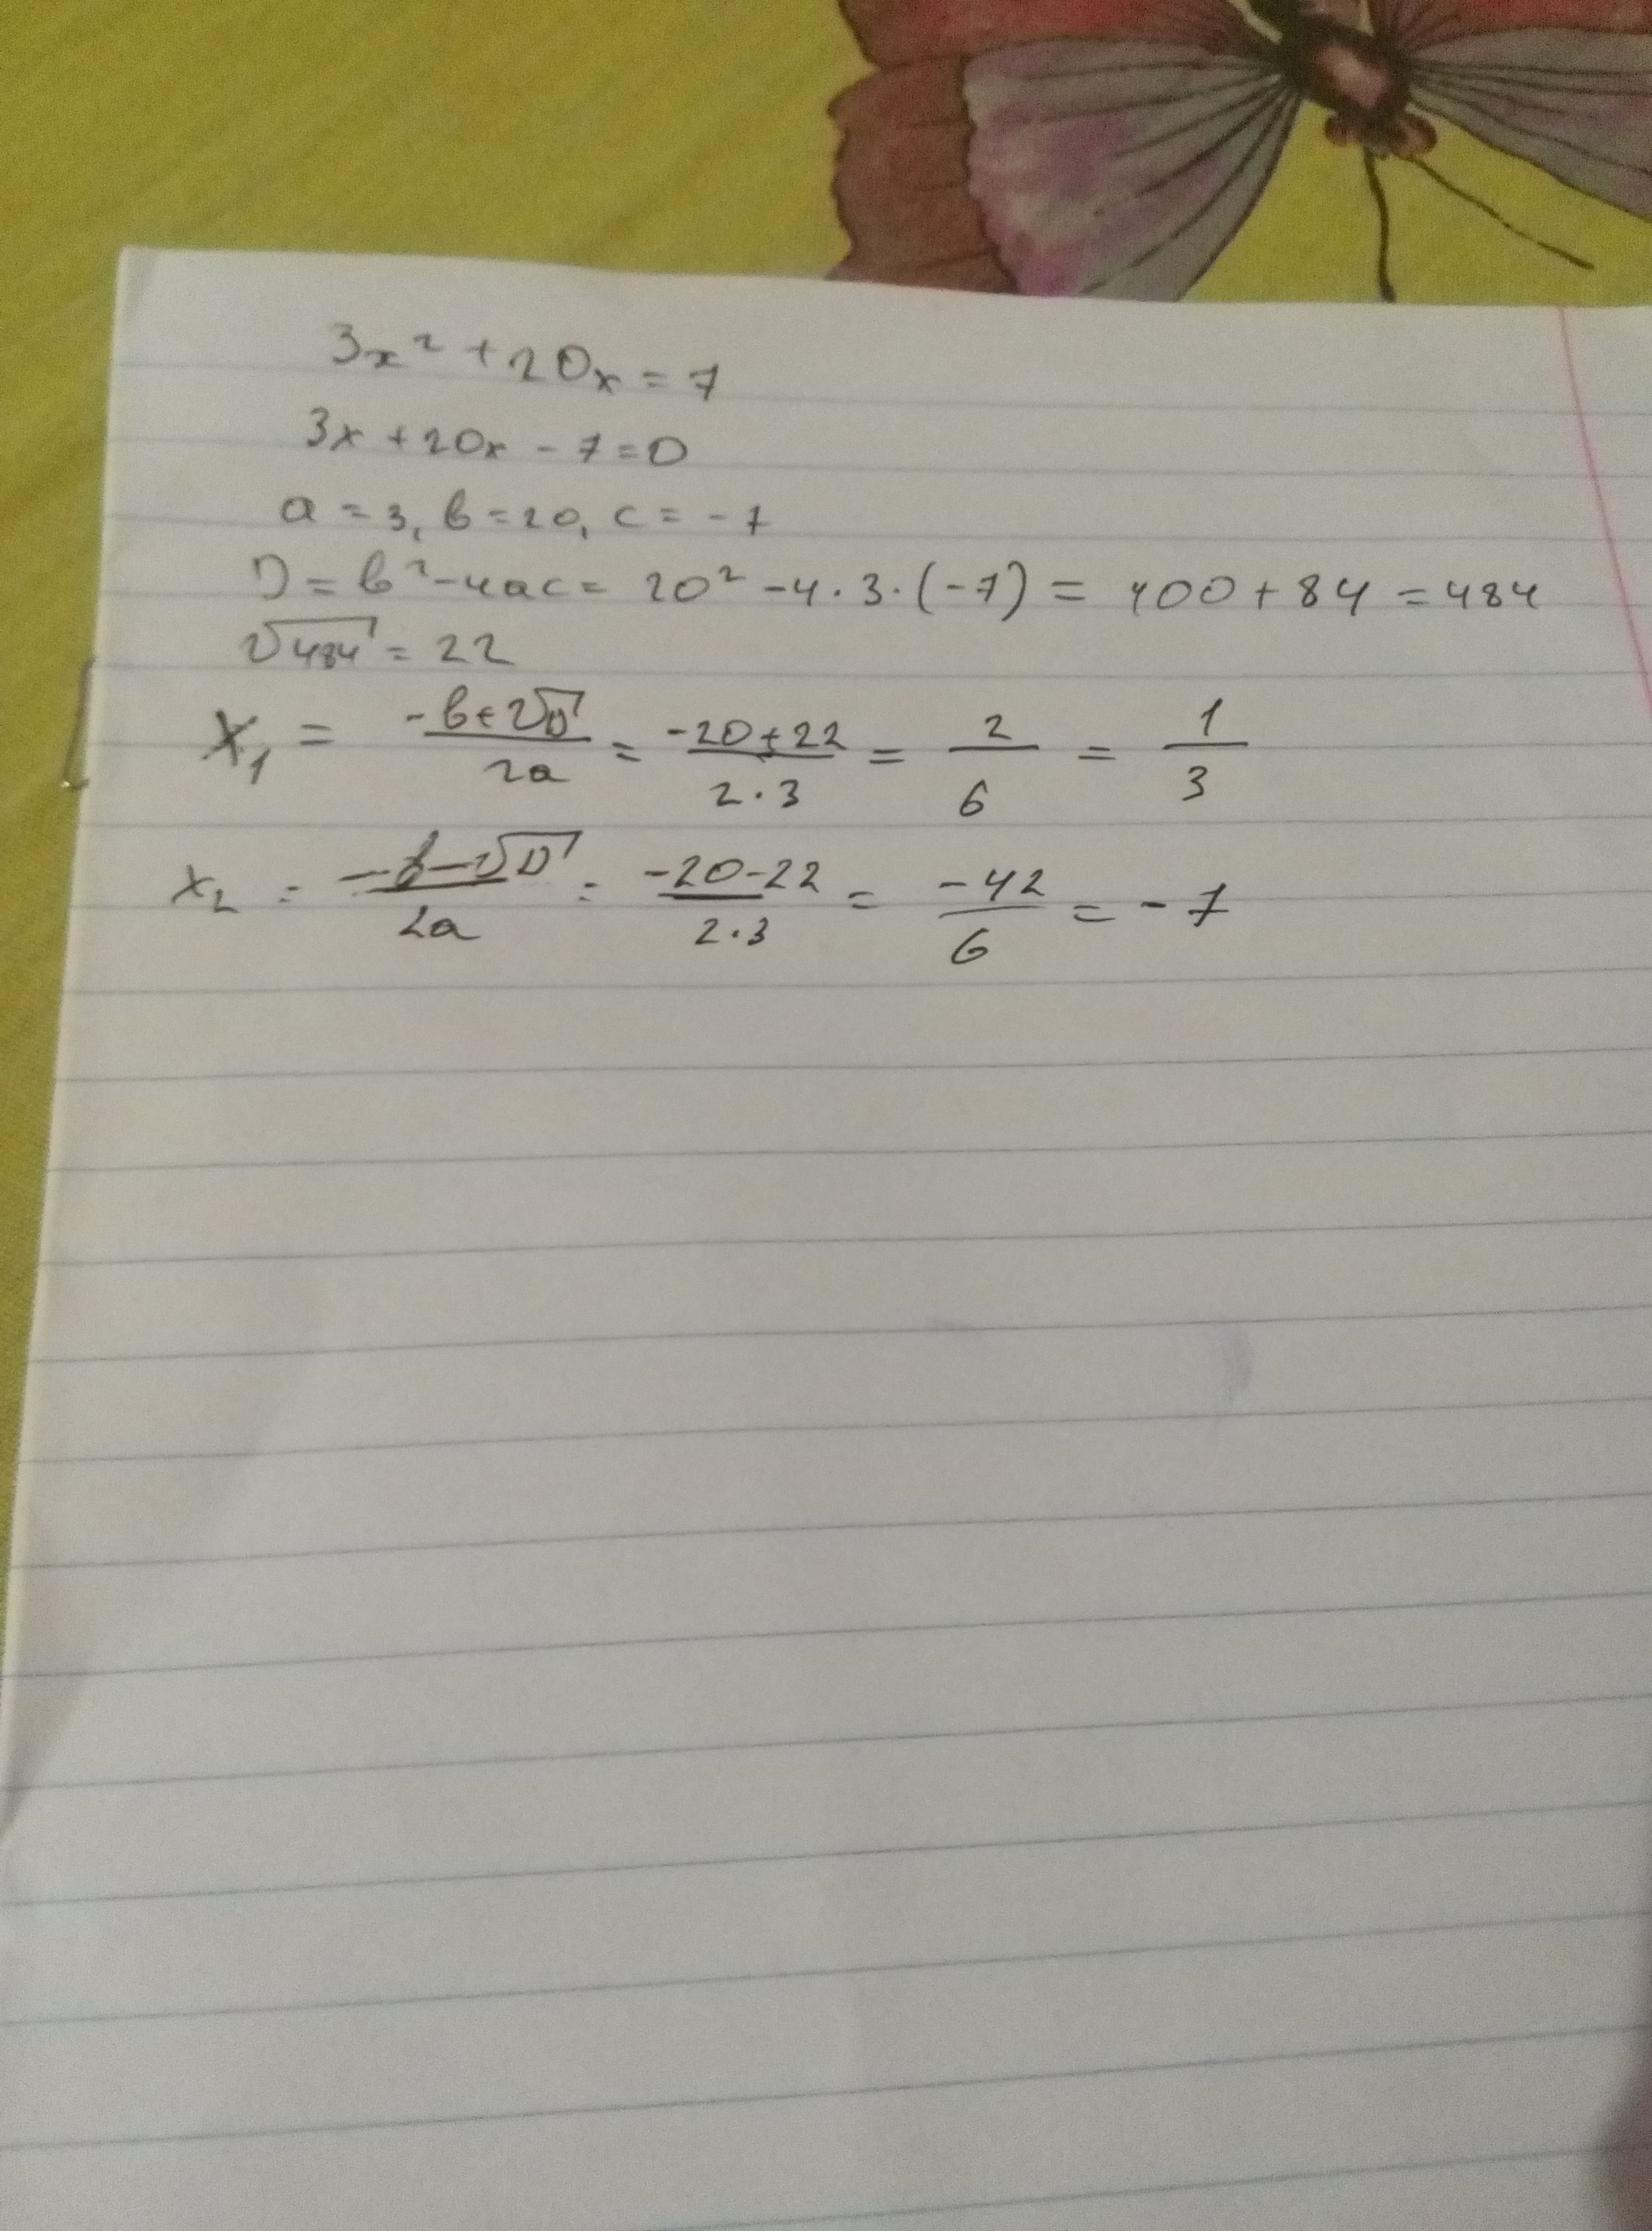 3x² + 20x = 7
3x + 20x - 7 = 0
a = 3, b = 20, c = -7
D = b² - 4ac = 20² - 4 · 3 · (-7) = 400 + 84 = 484
√484 = 22
X₁ = (-b + √D) / 2a = (-20 + 22) / 2 · 3 = 2 / 6 = 1 / 3
x₂ = (-b - √D) / 2a = (-20 - 22) / 2 · 3 = -42 / 6 = -7